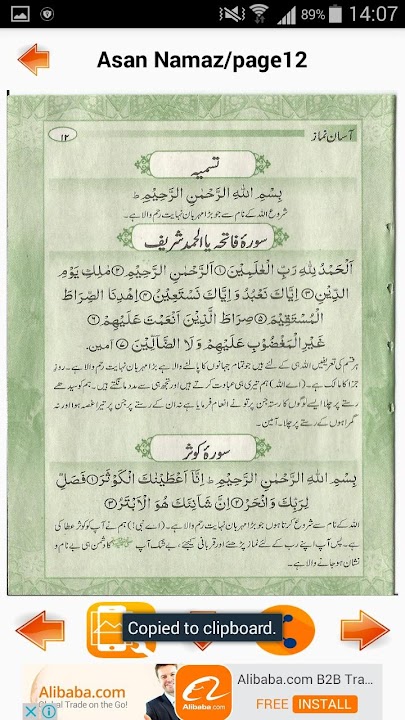 89% 14:07
Asan Namaz/page12
آسان نماز
١٢
تسمیہ
بِسْمِ اللهِ الرَّحْمٰنِ الرَّحِيْمِ ط
شروع اللہ کے نام سے جو بڑا مہربان نہایت رحم والا ہے۔
سورۂ فاتحہ یا الحمد شریف
اَلْحَمْدُ لِلّٰهِ رَبِّ الْعٰلَمِيْنَ ① الرَّحْمٰنِ الرَّحِيْمِ ② مٰلِكِ يَوْمِ
الدِّيْنِ ③ اِيَّاكَ نَعْبُدُ وَ اِيَّاكَ نَسْتَعِيْنُ ④ اِهْدِنَا الصِّرَاطَ
الْمُسْتَقِيْمَ ⑤ صِرَاطَ الَّذِيْنَ اَنْعَمْتَ عَلَيْهِمْ ⑥
غَيْرِ الْمَغْضُوْبِ عَلَيْهِمْ وَ لَا الضَّآلِّيْنَ ⑦ آمین۔
ہر قسم کی تعریفیں اللہ ہی کے لئے ہیں جو تمام جہانوں کا پالنے والا ہے بڑا مہربان نہایت رحم والا ہے۔ روز
جزا کا مالک ہے۔ (اے اللہ) ہم تیری ہی عبادت کرتے ہیں اور تجھ ہی سے مدد مانگتے ہیں۔ ہم کو سیدھے
رستے پر چلا ایسے لوگوں کا رستہ جن پر تو نے انعام فرمایا ہے نہ ان کے رستے پر جن پر تیرا غصہ ہوا اور نہ
گمراہوں کے رستے پر چلا۔ آمین۔
سورۂ کوثر
بِسْمِ اللهِ الرَّحْمٰنِ الرَّحِيْمِ ط اِنَّآ اَعْطَيْنٰكَ الْكَوْثَرَ ① فَصَلِّ
لِرَبِّكَ وَ انْحَرْ ② اِنَّ شَانِئَكَ هُوَ الْاَبْتَرُ ③
اللہ کے نام سے شروع کرتا ہوں جو بڑا مہربان نہایت رحم والا ہے۔ (اے نبی!) ہم نے آپ کو کوثر عطا کی
ہے۔ پس آپ اپنے رب کے لئے نماز پڑھئے اور قربانی کیجئے، بے شک آپ ﷺ کا دشمن ہی بے نام و
نشان ہو جانے والا ہے۔
Copied to clipboard.
Alibaba.com
Global Trade on the Go!
Alibaba.com
Alibaba.com B2B Tra...
FREE INSTALL